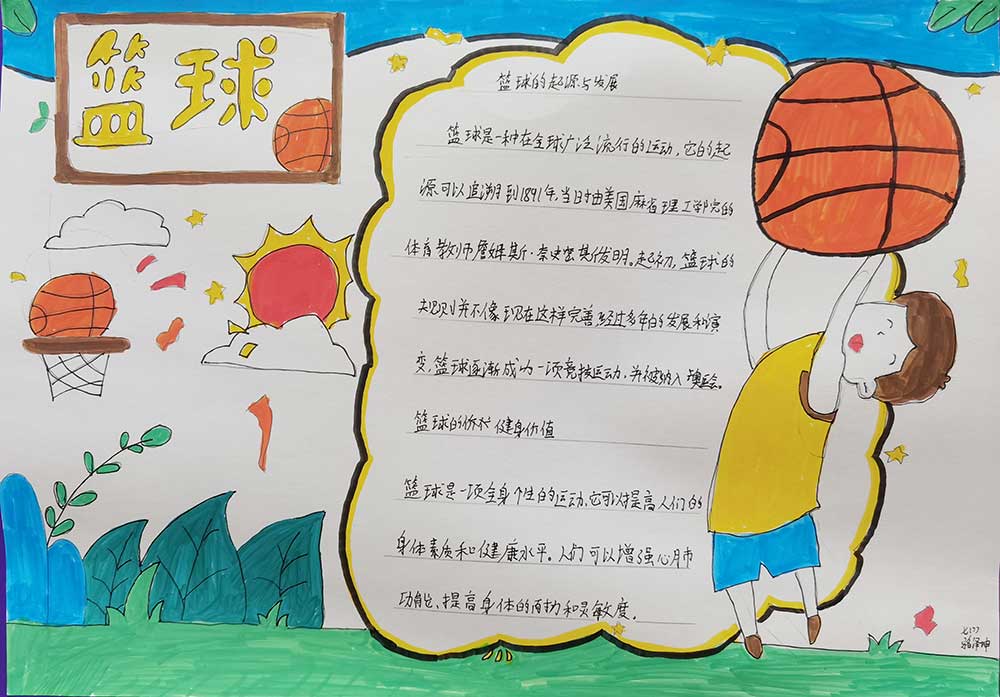 篮球
篮球的起源与发展
篮球是一种在全球广泛流行的运动,它的起
源可以追溯到1891年,当时由美国麻省理工学院的
体育教师詹姆斯·奈史密斯发明。起初,篮球的
规则并不像现在这样完善经过多年的发展和演
变,篮球逐渐成为一项竞技运动,并被纳入奥运会。
篮球的价值 健身价值
篮球是一项全身个性的运动,它可以提高人们的
身体素质和健康水平。人们可以增强心肺
功能、提高身体的耐力和灵敏度。
七(7)
骆泽坤